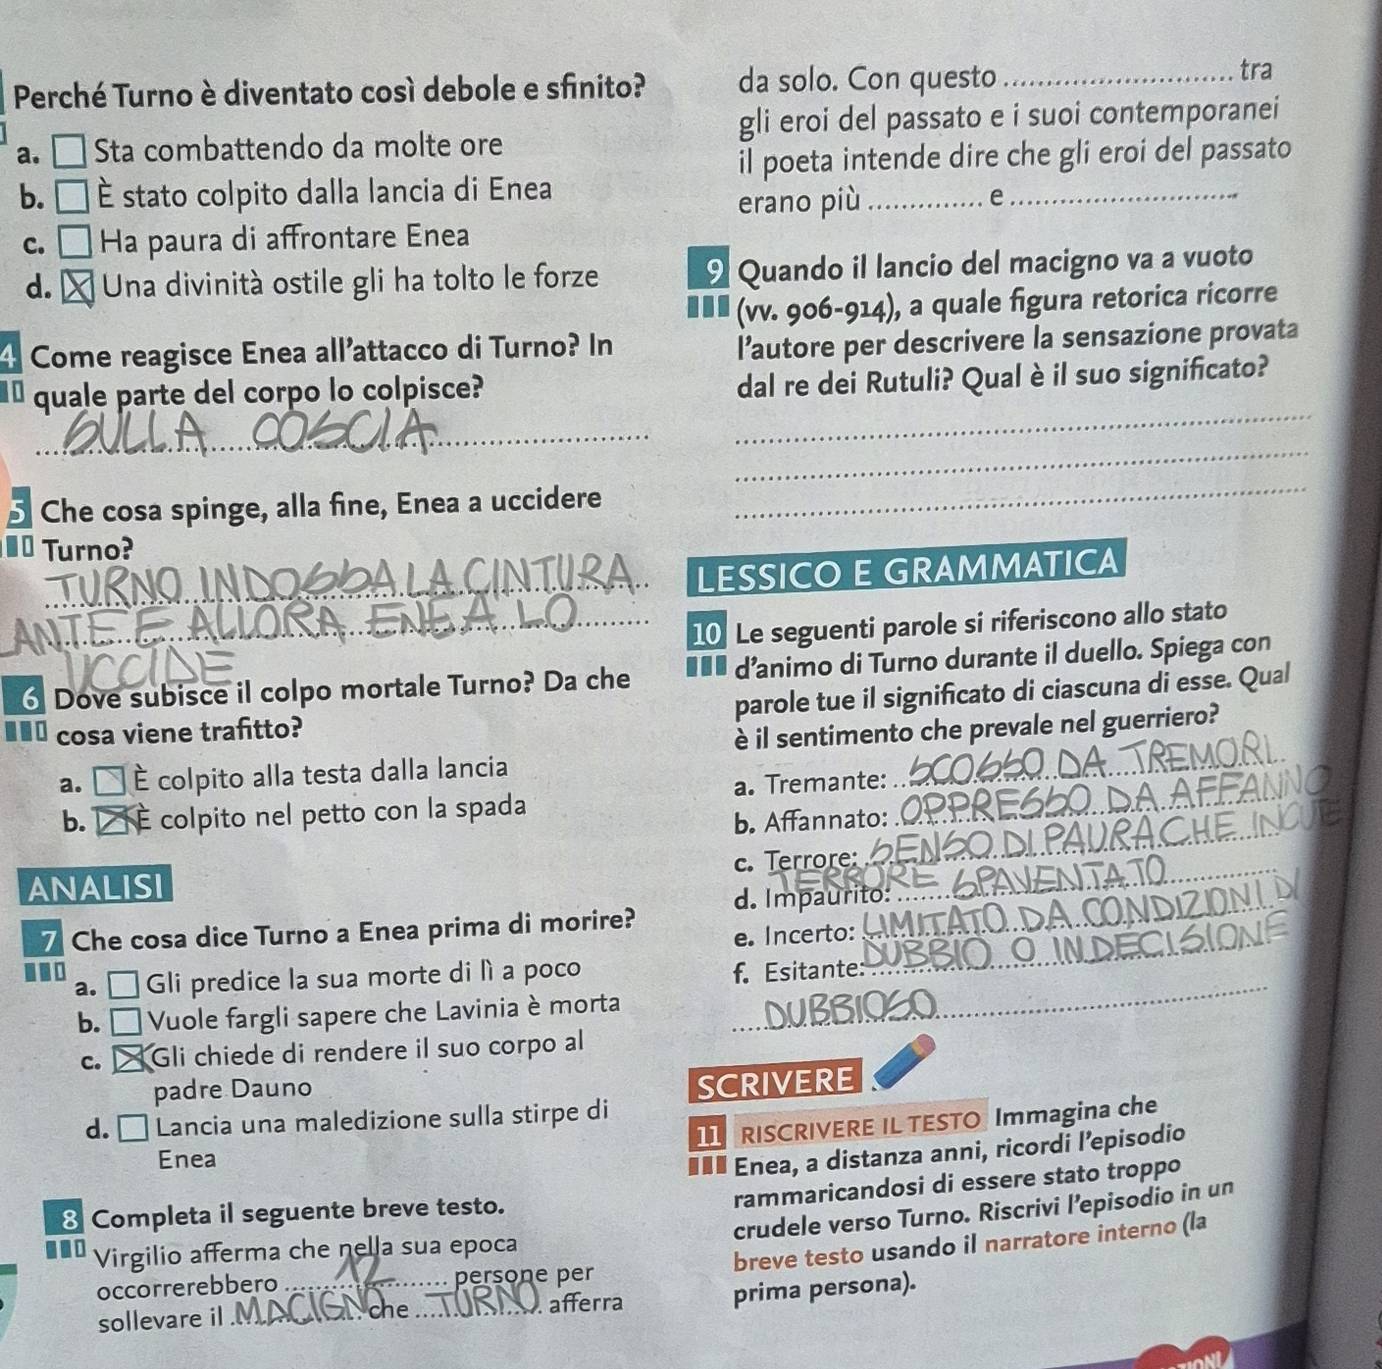 Perché Turno è diventato così debole e sfinito?
a. Sta combattendo da molte ore
b. È stato colpito dalla lancia di Enea
c. Ha paura di affrontare Enea
d. X Una divinità ostile gli ha tolto le forze
4 Come reagisce Enea all'attacco di Turno? In
quale parte del corpo lo colpisce?
SULLA COSCIA
5 Che cosa spinge, alla fine, Enea a uccidere
Turno?
TURNO INDOSSA LA CINTURA
ANTE E ALLORA ENEA LO
UCCIDE
6 Dove subisce il colpo mortale Turno? Da che
cosa viene trafitto?
a. È colpito alla testa dalla lancia
b. X È colpito nel petto con la spada
ANALISI
7 Che cosa dice Turno a Enea prima di morire?
a. Gli predice la sua morte di lì a poco
b. Vuole fargli sapere che Lavinia è morta
c. X Gli chiede di rendere il suo corpo al
padre Dauno
d. Lancia una maledizione sulla stirpe di
Enea
8 Completa il seguente breve testo.
Virgilio afferma che nella sua epoca
occorrerebbero 12 persone per
sollevare il MACIGNO che TURNO afferra
da solo. Con questo tra
gli eroi del passato e i suoi contemporanei
il poeta intende dire che gli eroi del passato
erano più e
9 Quando il lancio del macigno va a vuoto
(vv. 906-914), a quale figura retorica ricorre
l'autore per descrivere la sensazione provata
dal re dei Rutuli? Qual è il suo significato?
LESSICO E GRAMMATICA
10 Le seguenti parole si riferiscono allo stato
d'animo di Turno durante il duello. Spiega con
parole tue il significato di ciascuna di esse. Qual
è il sentimento che prevale nel guerriero?
a. Tremante: SCOSSO DA TREMORI
b. Affannato: OPPRESSO DA AFFANNO
c. Terrore: SENSO DI PAURA CHE INCUTE
TERRORE
d. Impaurito: SPAVENTATO
e. Incerto: LIMITATO DA CONDIZIONI DI
DUBBIO O INDECISIONE
f. Esitante:
DUBBIOSO
SCRIVERE
11 RISCRIVERE IL TESTO Immagina che
Enea, a distanza anni, ricordi l'episodio
rammaricandosi di essere stato troppo
crudele verso Turno. Riscrivi l'episodio in un
breve testo usando il narratore interno (la
prima persona).